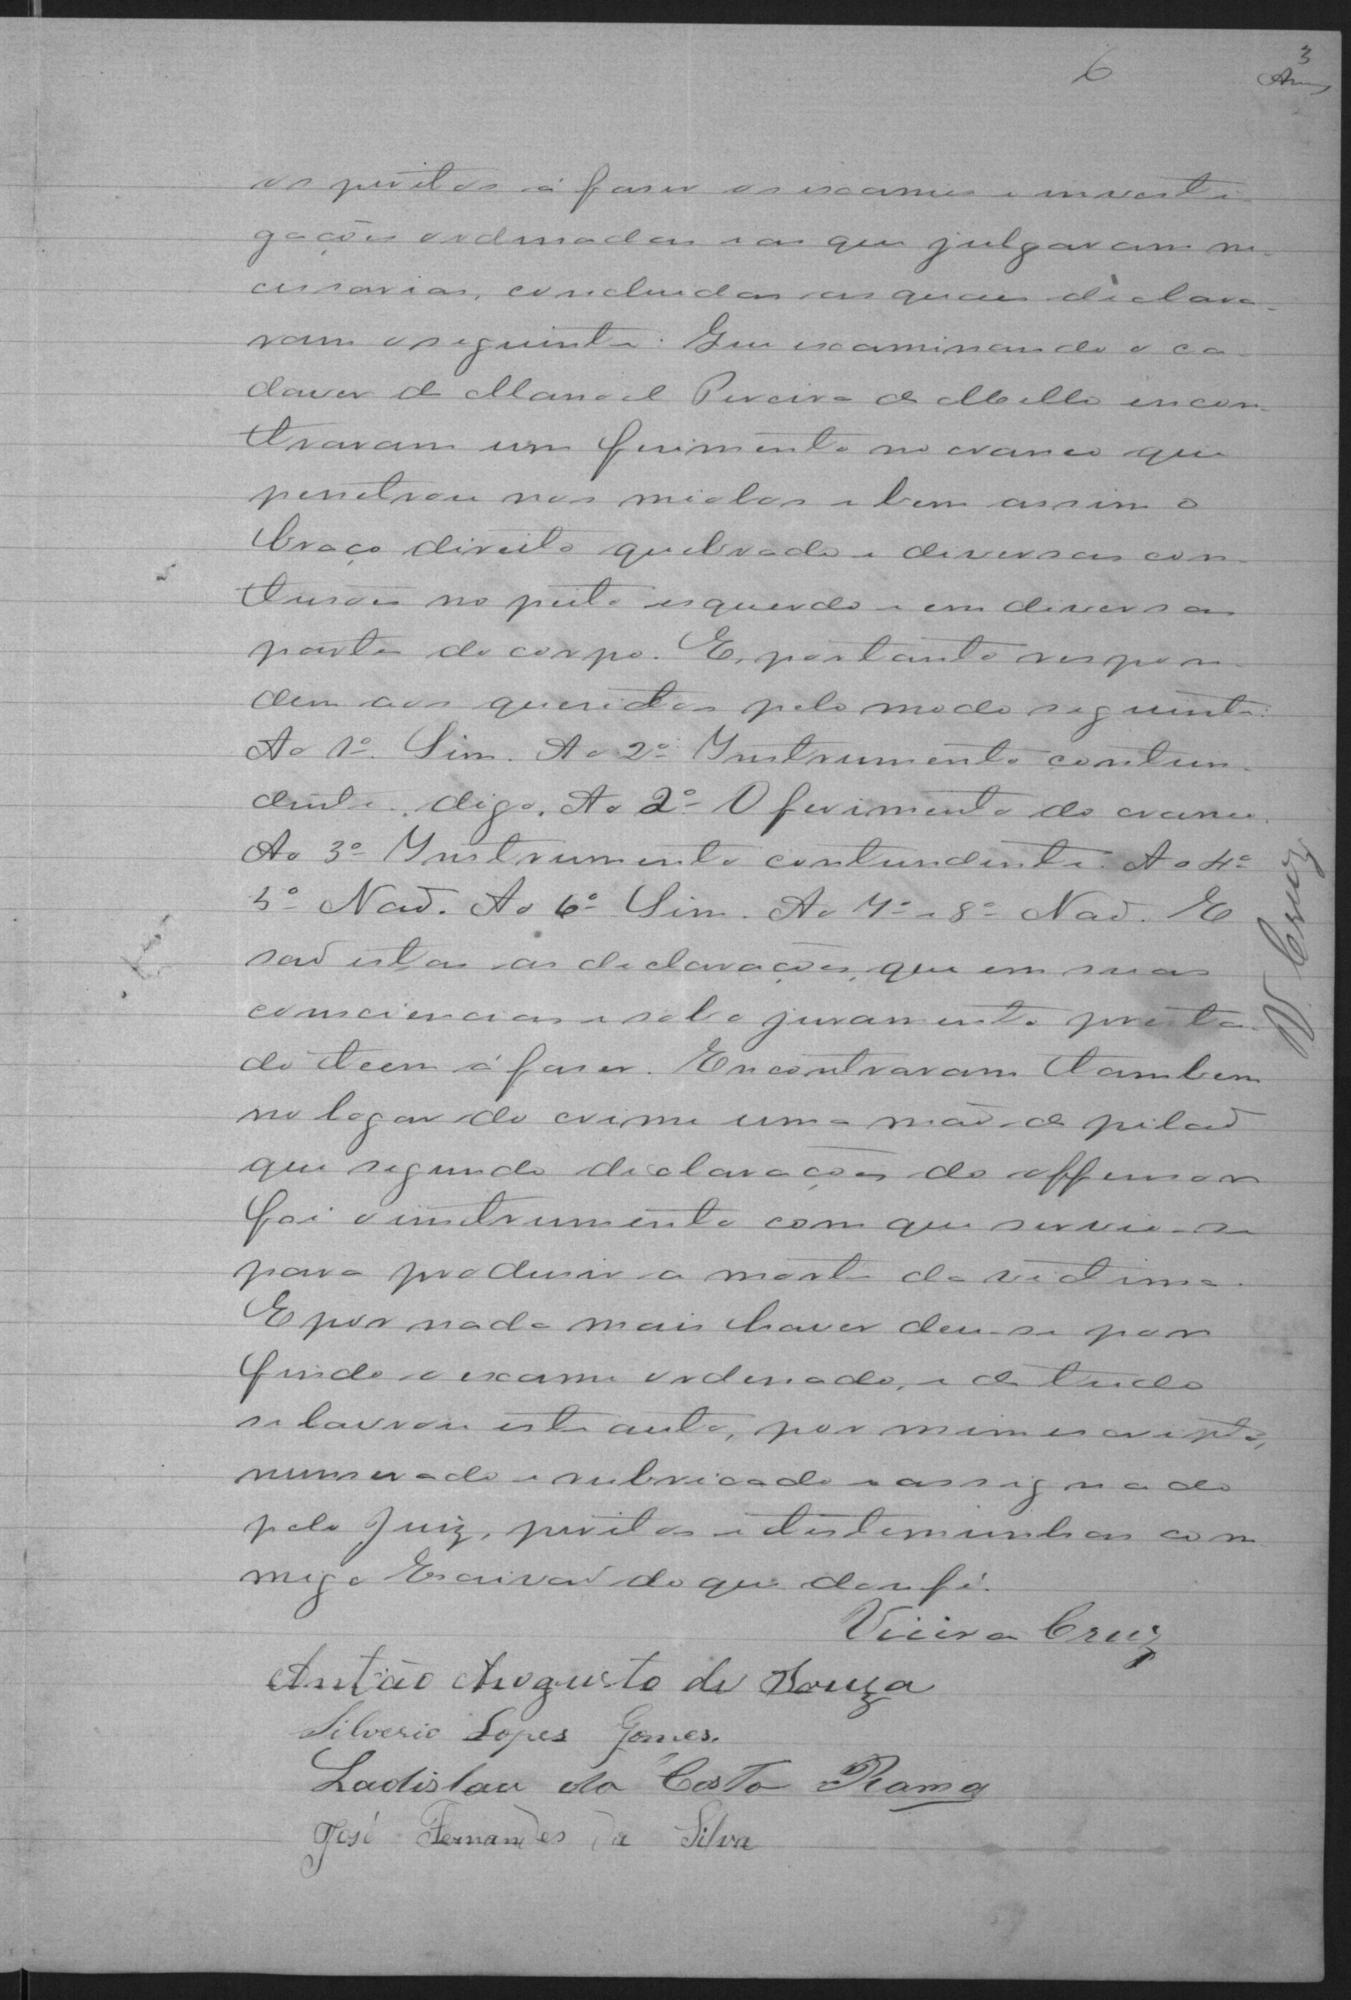 6
3
os peritos á faser os exames e investi-
gações ordenadas e as que julgaram ne-
cessarias, concluidas as quaes declara-
ram o seguinte: Que examinando o ca-
daver de Manoel Pereira de Mello encon-
traram um ferimento no craneo que
penetrou nos miolos e bem assim o
braço direito quebrado e diversas con-
tusões no peito esquerdo e em diversas
partes do corpo. E, portanto respon-
dem aos quesitos pelo modo seguinte:
Ao 1º Sim. Ao 2º Instrumento contun-
dente, digo, Ao 2º O ferimento do craneo.
Ao 3º Instrumento contundente. Ao 4º
5º Naõ. Ao 6º Sim. Ao 7º e 8º Naõ. E
saõ estas as declarações, que em suas
consciencias e sob o juramento presta-
do teem á faser. Encontraram tambem
no logar do crime uma maõ de pilaõ
que segundo declarações do offensor
foi o instrumento com que servio-se
para produsir a morte da victima.
E por nada mais haver deu-se por
findo o exame ordenado, e de tudo
se lavrou este auto, por mim escripto,
numerado e rubricado e assignado
pelo Juiz, peritos e testemunhas com
migo Escrivaõ do que dou fé.
Vieira Cruz
Antão Augusto de Souza
Silverio Lopes Gomes.
Ladislau da Costa Rama
José Fernandes da Silva
V. Cruz